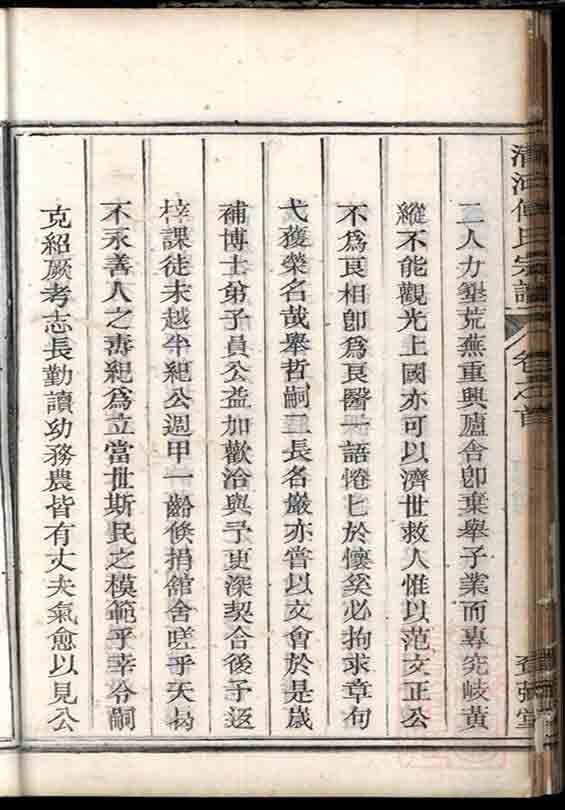 清河傅氏宗譜 卷之首
二人力墾荒蕪重興廬舍卽棄舉子業而專究岐黃
縱不能觀光上國亦可以濟世救人惟以范文正公
不爲良相卽爲良醫一語惓匕於懷奚必拘求章句
弋獲榮名哉舉哲嗣二長名嚴亦嘗以文會於是歲
補博士弟子員公益加歡洽與予更深契合後予返
梓課徒未越半紀公週甲一齡倐捐舘舍嗟乎天曷
不永善人之壽紀爲立當世斯民之模範乎幸令嗣
克紹厥考志長勤讀幼務農皆有丈夫氣愈以見公